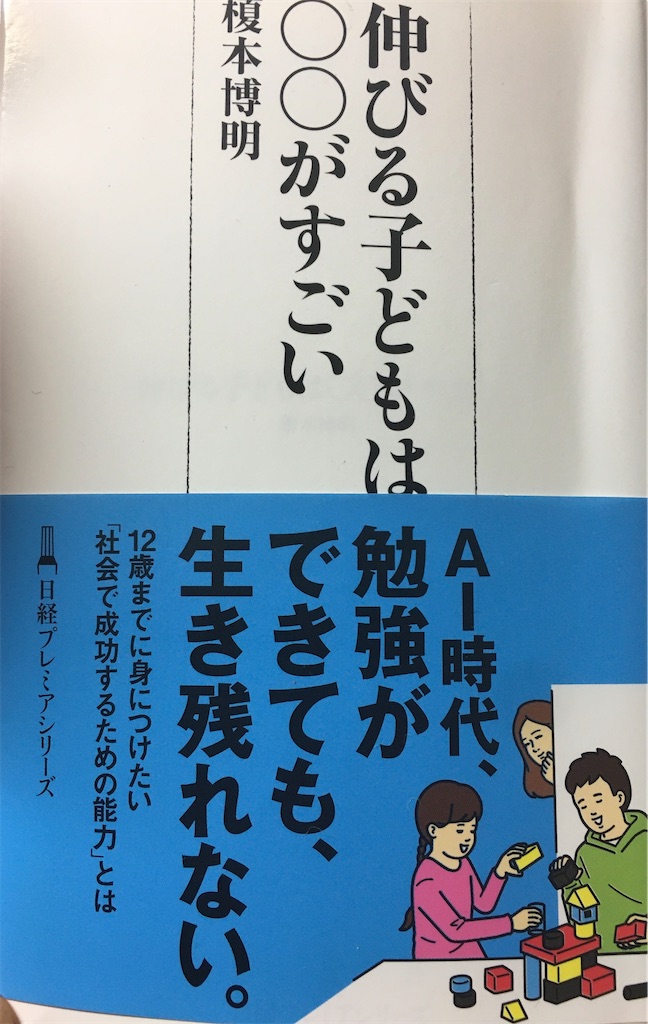 伸びる子どもは
〇〇がすごい
榎本博明
AI時代、
勉強が
できても、
生き残れない。
12歳までに身につけたい
「社会で成功するための能力」とは
日経プレミアシリーズ